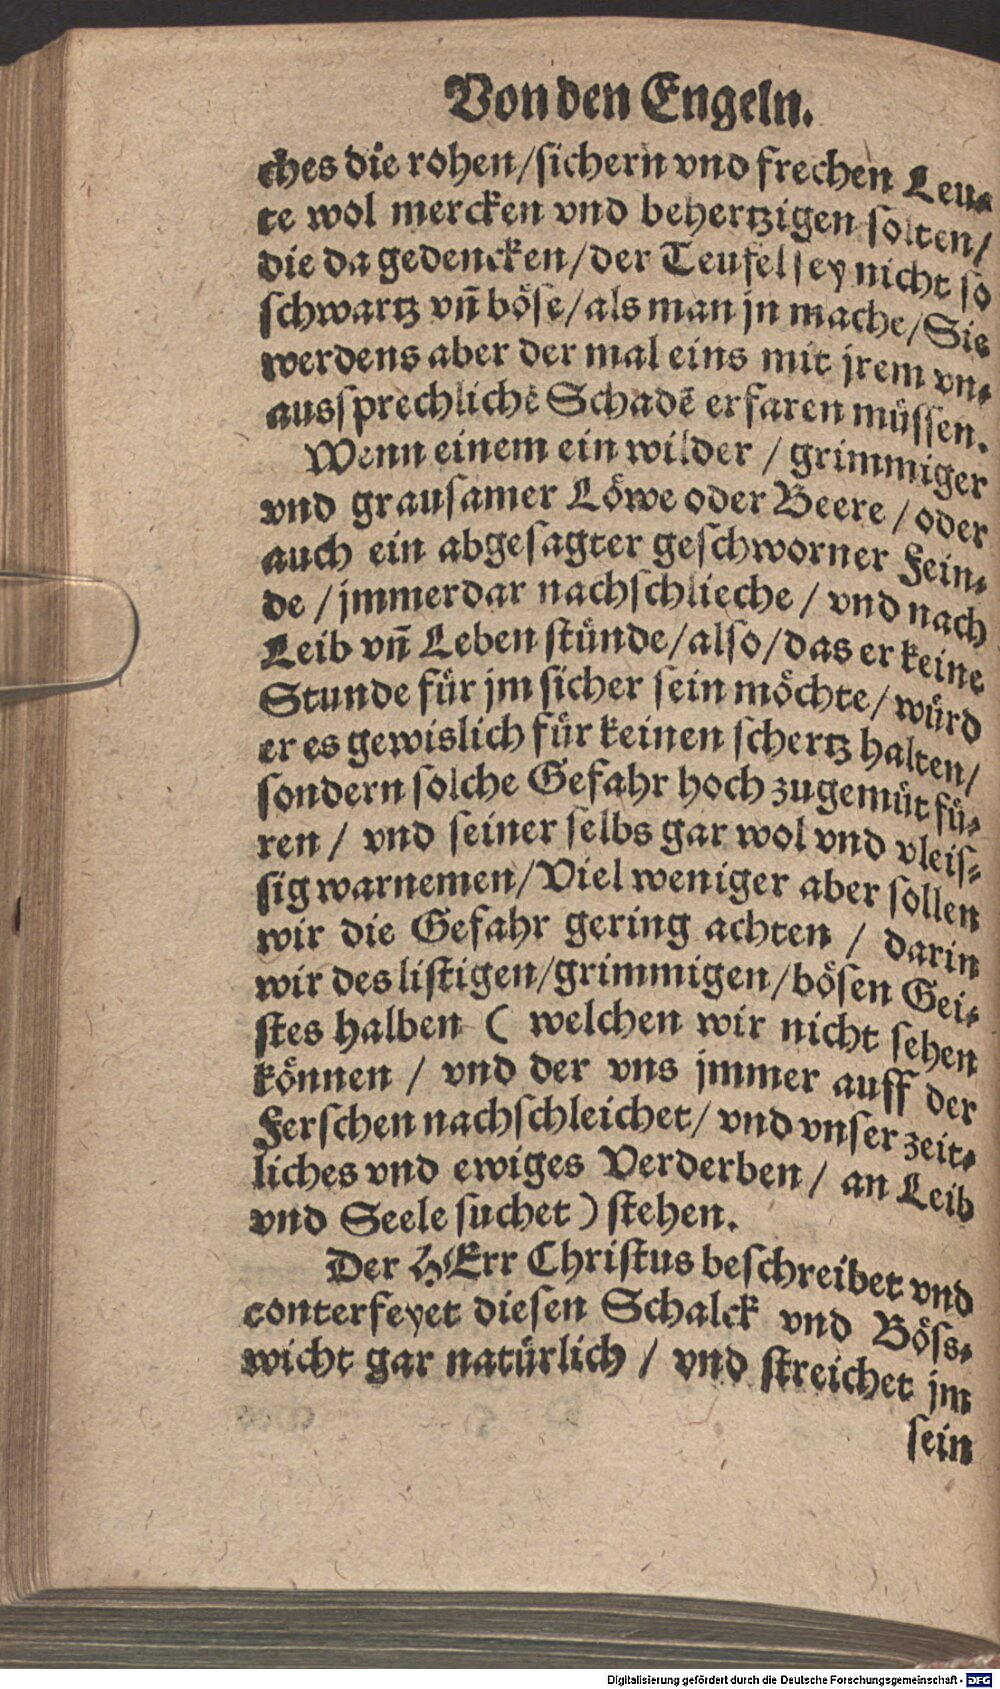 Von den Engeln.
ches die rohen/sichern vnd frechen Leu⸗
te wol mercken vnd behertzigen solten/
die da gedencken/der Teufel sey nicht so
schwartz vñ böse/als man jn mache/Sie
werdens aber der mal eins mit jrem vn⸗
aussprechlichē Schadē erfaren müssen.
Wenn einem ein wilder / grimmiger
vnd grausamer Löwe oder Beere / oder
auch ein abgesagter geschworner Fein⸗
de / jmmerdar nachschlieche / vnd nach
Leib vñ Leben stünde/also/das er keine
Stunde für jm sicher sein möchte/ würd
er es gewislich für keinen schertz halten/
sondern solche Gefahr hoch zugemüt fü⸗
ren / vnd seiner selbs gar wol vnd vleis⸗
sig warnemen/Viel weniger aber sollen
wir die Gefahr gering achten / darin
wir des listigen/grimmigen/bösen Gei⸗
stes halben ( welchen wir nicht sehen
können / vnd der vns jmmer auff der
Ferschen nachschleichet/ vnd vnser zeit⸗
liches vnd ewiges Verderben / an Leib
vnd Seele suchet ) stehen.
Der HErr Christus beschreibet vnd
conterfeyet diesen Schalck vnd Bös⸗
wicht gar natürlich / vnd streichet jm
sein
Digitalisierung gefördert durch die Deutsche Forschungsgemeinschaft - DFG